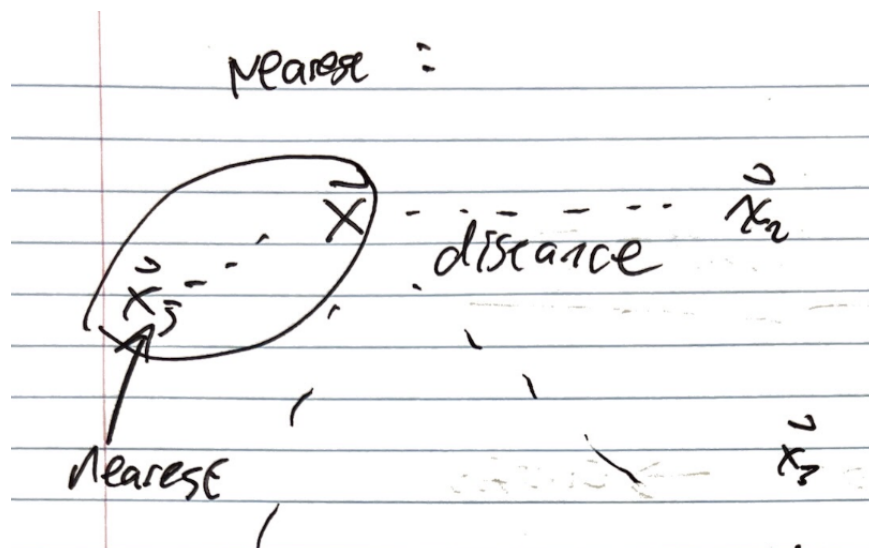 Nearest :
x⃗
x⃗₂
distance
x⃗₅
x⃗₃
nearest